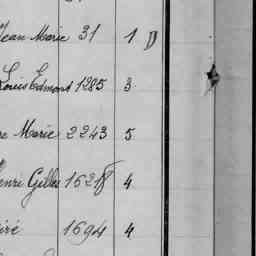 Jean Marie 31 1 D
Louis Edmont 1285 3
Marie 2243 5
Henri Gilles 4
1694 4